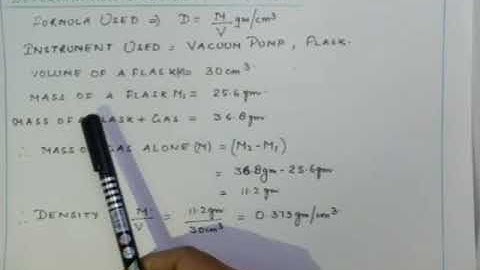 FORMULA USED ⇒ D = M/V gm/cm³
INSTRUMENT USED = VACUUM PUMP, FLASK.
VOLUME OF A FLASK = 30 cm³
MASS OF A FLASK M₁ = 25.6 gm
MASS OF FLASK + GAS = 36.8 gm
∴ MASS OF GAS ALONE (M) = (M₂ - M₁)
= 36.8 gm - 25.6 gm
= 11.2 gm
∴ DENSITY M/V = 11.2 gm/30 cm³ = 0.373 gm/cm³